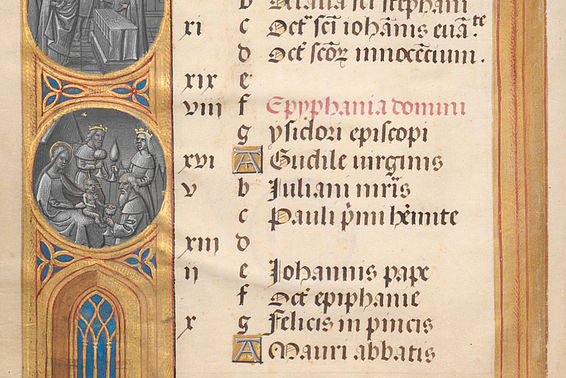 b Octaua sci stephani
xi c Oct̄ scī iohānis euāᵗᵉ
d Oct̄ scōꝝ innocētium.
xix e
viii f Epyphania domini
g ysidori episcopi
xvi A Gudile uirginis
v b Iuliani mr̄is
c Pauli p̄mi hēmite
xiii d
ii e Iohannis pape
f Oct̄ epiphanie
x g Felicis in pincis
A Mauri abbatis